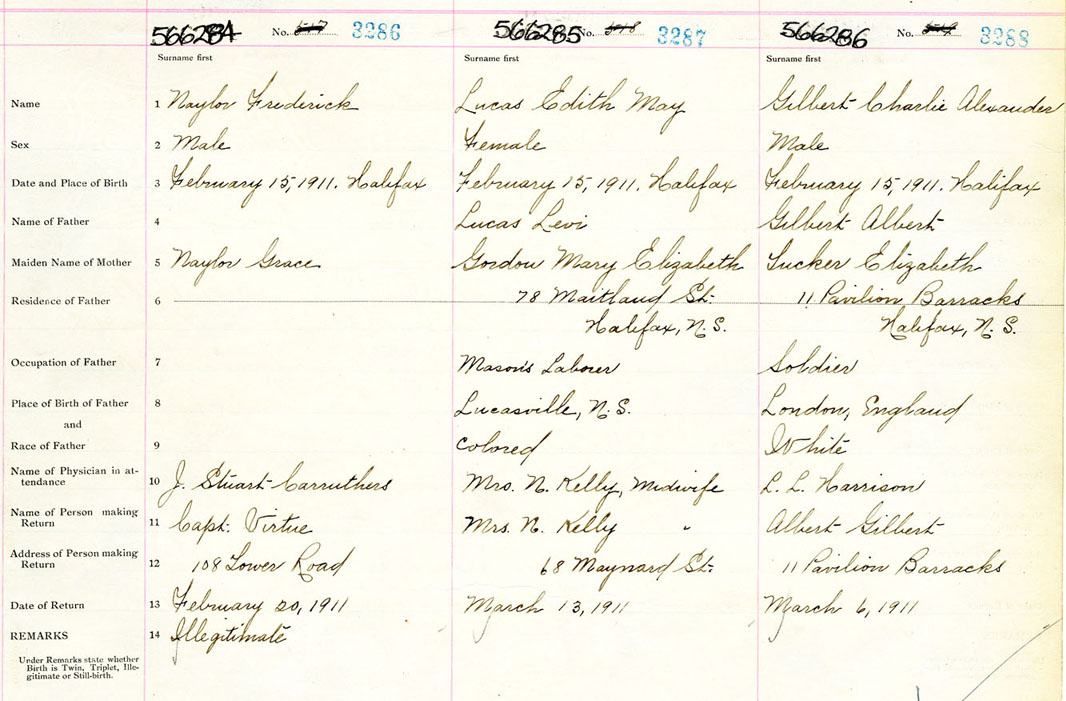 566284 No. 517 3286 566285 No. 518 3287 566286 No. 519 3288
Surname first Surname first Surname first
Name 1 Naylor Frederick Lucas Edith May Gilbert Charlie Alexander
Sex 2 Male Female Male
Date and Place of Birth 3 February 15, 1911. Halifax February 15, 1911. Halifax February 15, 1911. Halifax
Name of Father 4 Lucas Levi Gilbert Albert
Maiden Name of Mother 5 Naylor Grace Gordon Mary Elizabeth Tucker Elizabeth
Residence of Father 6 78 Maitland St. 11 Pavilion Barracks
Halifax, N.S. Halifax, N.S.
Occupation of Father 7 Mason's Laborer Soldier
Place of Birth of Father 8 Lucasville, N.S. London, England
and
Race of Father 9 Colored White
Name of Physician in at-
tendance 10 J. Stuart Carruthers Mrs. N. Kelly, Midwife L. L. Harrison
Name of Person making
Return 11 Capt. Virtue Mrs. N. Kelly " Albert Gilbert
Address of Person making
Return 12 108 Lower Road 68 Maynard St. 11 Pavilion Barracks
Date of Return 13 February 20, 1911 March 13, 1911 March 6, 1911
REMARKS 14 Illegitimate
Under Remarks state whether
Birth is Twin, Triplet, Ille-
gitimate or Still-birth.